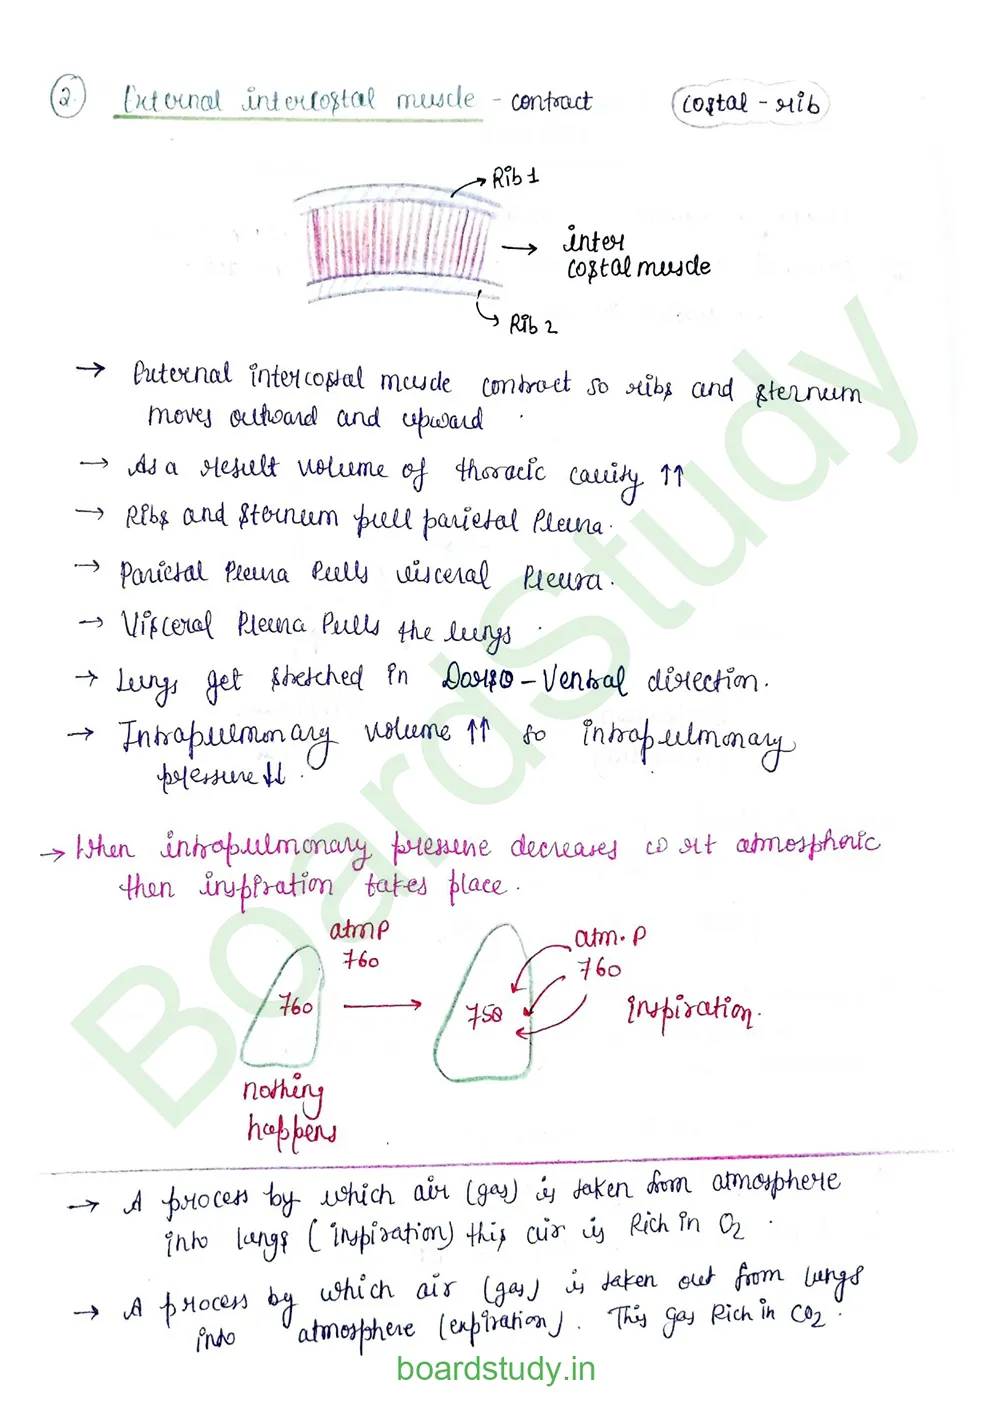 2. External intercostal muscle - contract
costal - rib
Rib 1
inter
costal muscle
Rib 2
→ External intercostal muscle contract so ribs and sternum
moves outward and upward
→ As a result volume of thoracic cavity ↑↑
→ Ribs and sternum pull parietal Pleura.
→ Parietal Pleura Pulls visceral Pleura.
→ Visceral Pleura Pulls the lungs.
→ Lungs get stretched in Dorso-Ventral direction.
→ Intrapulmonary volume ↑↑ so intrapulmonary
pressure ↓↓.
→ When intrapulmonary pressure decreases w rt atmospheric
then inspiration takes place.
atm P
760
760
nothing
happens
atm. P
760
758
inspiration.
→ A process by which air (gas) is taken from atmosphere
into lungs (inspiration) this air is Rich in O2.
→ A process by which air (gas) is taken out from lungs
into atmosphere (expiration). This gas Rich in CO2.
BoardStudy
boardstudy.in